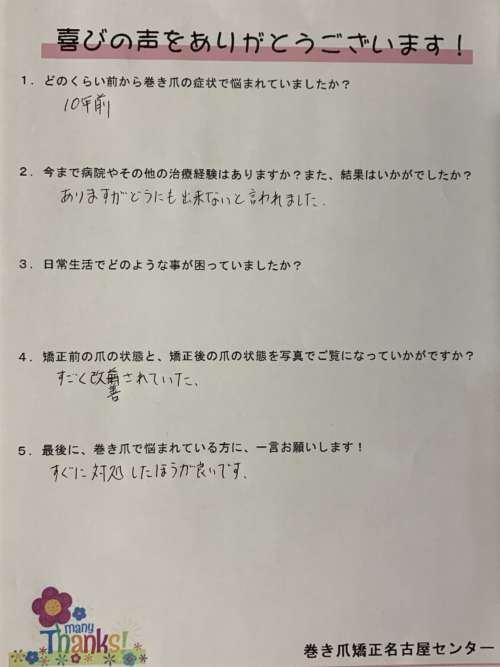 喜びの声をありがとうございます！
１．どのくらい前から巻き爪の症状で悩まれていましたか？
10年前
２．今まで病院やその他の治療経験はありますか？また、結果はいかがでしたか？
ありますがどうにも出来ないと言われました．
３．日常生活でどのような事が困っていましたか？
４．矯正前の爪の状態と、矯正後の爪の状態を写真でご覧になっていかがですか？
すごく改善されていた、
５．最後に、巻き爪で悩まれている方に、一言お願いします！
すぐに対処したほうが良いです、
many
Thanks!
巻き爪矯正名古屋センター